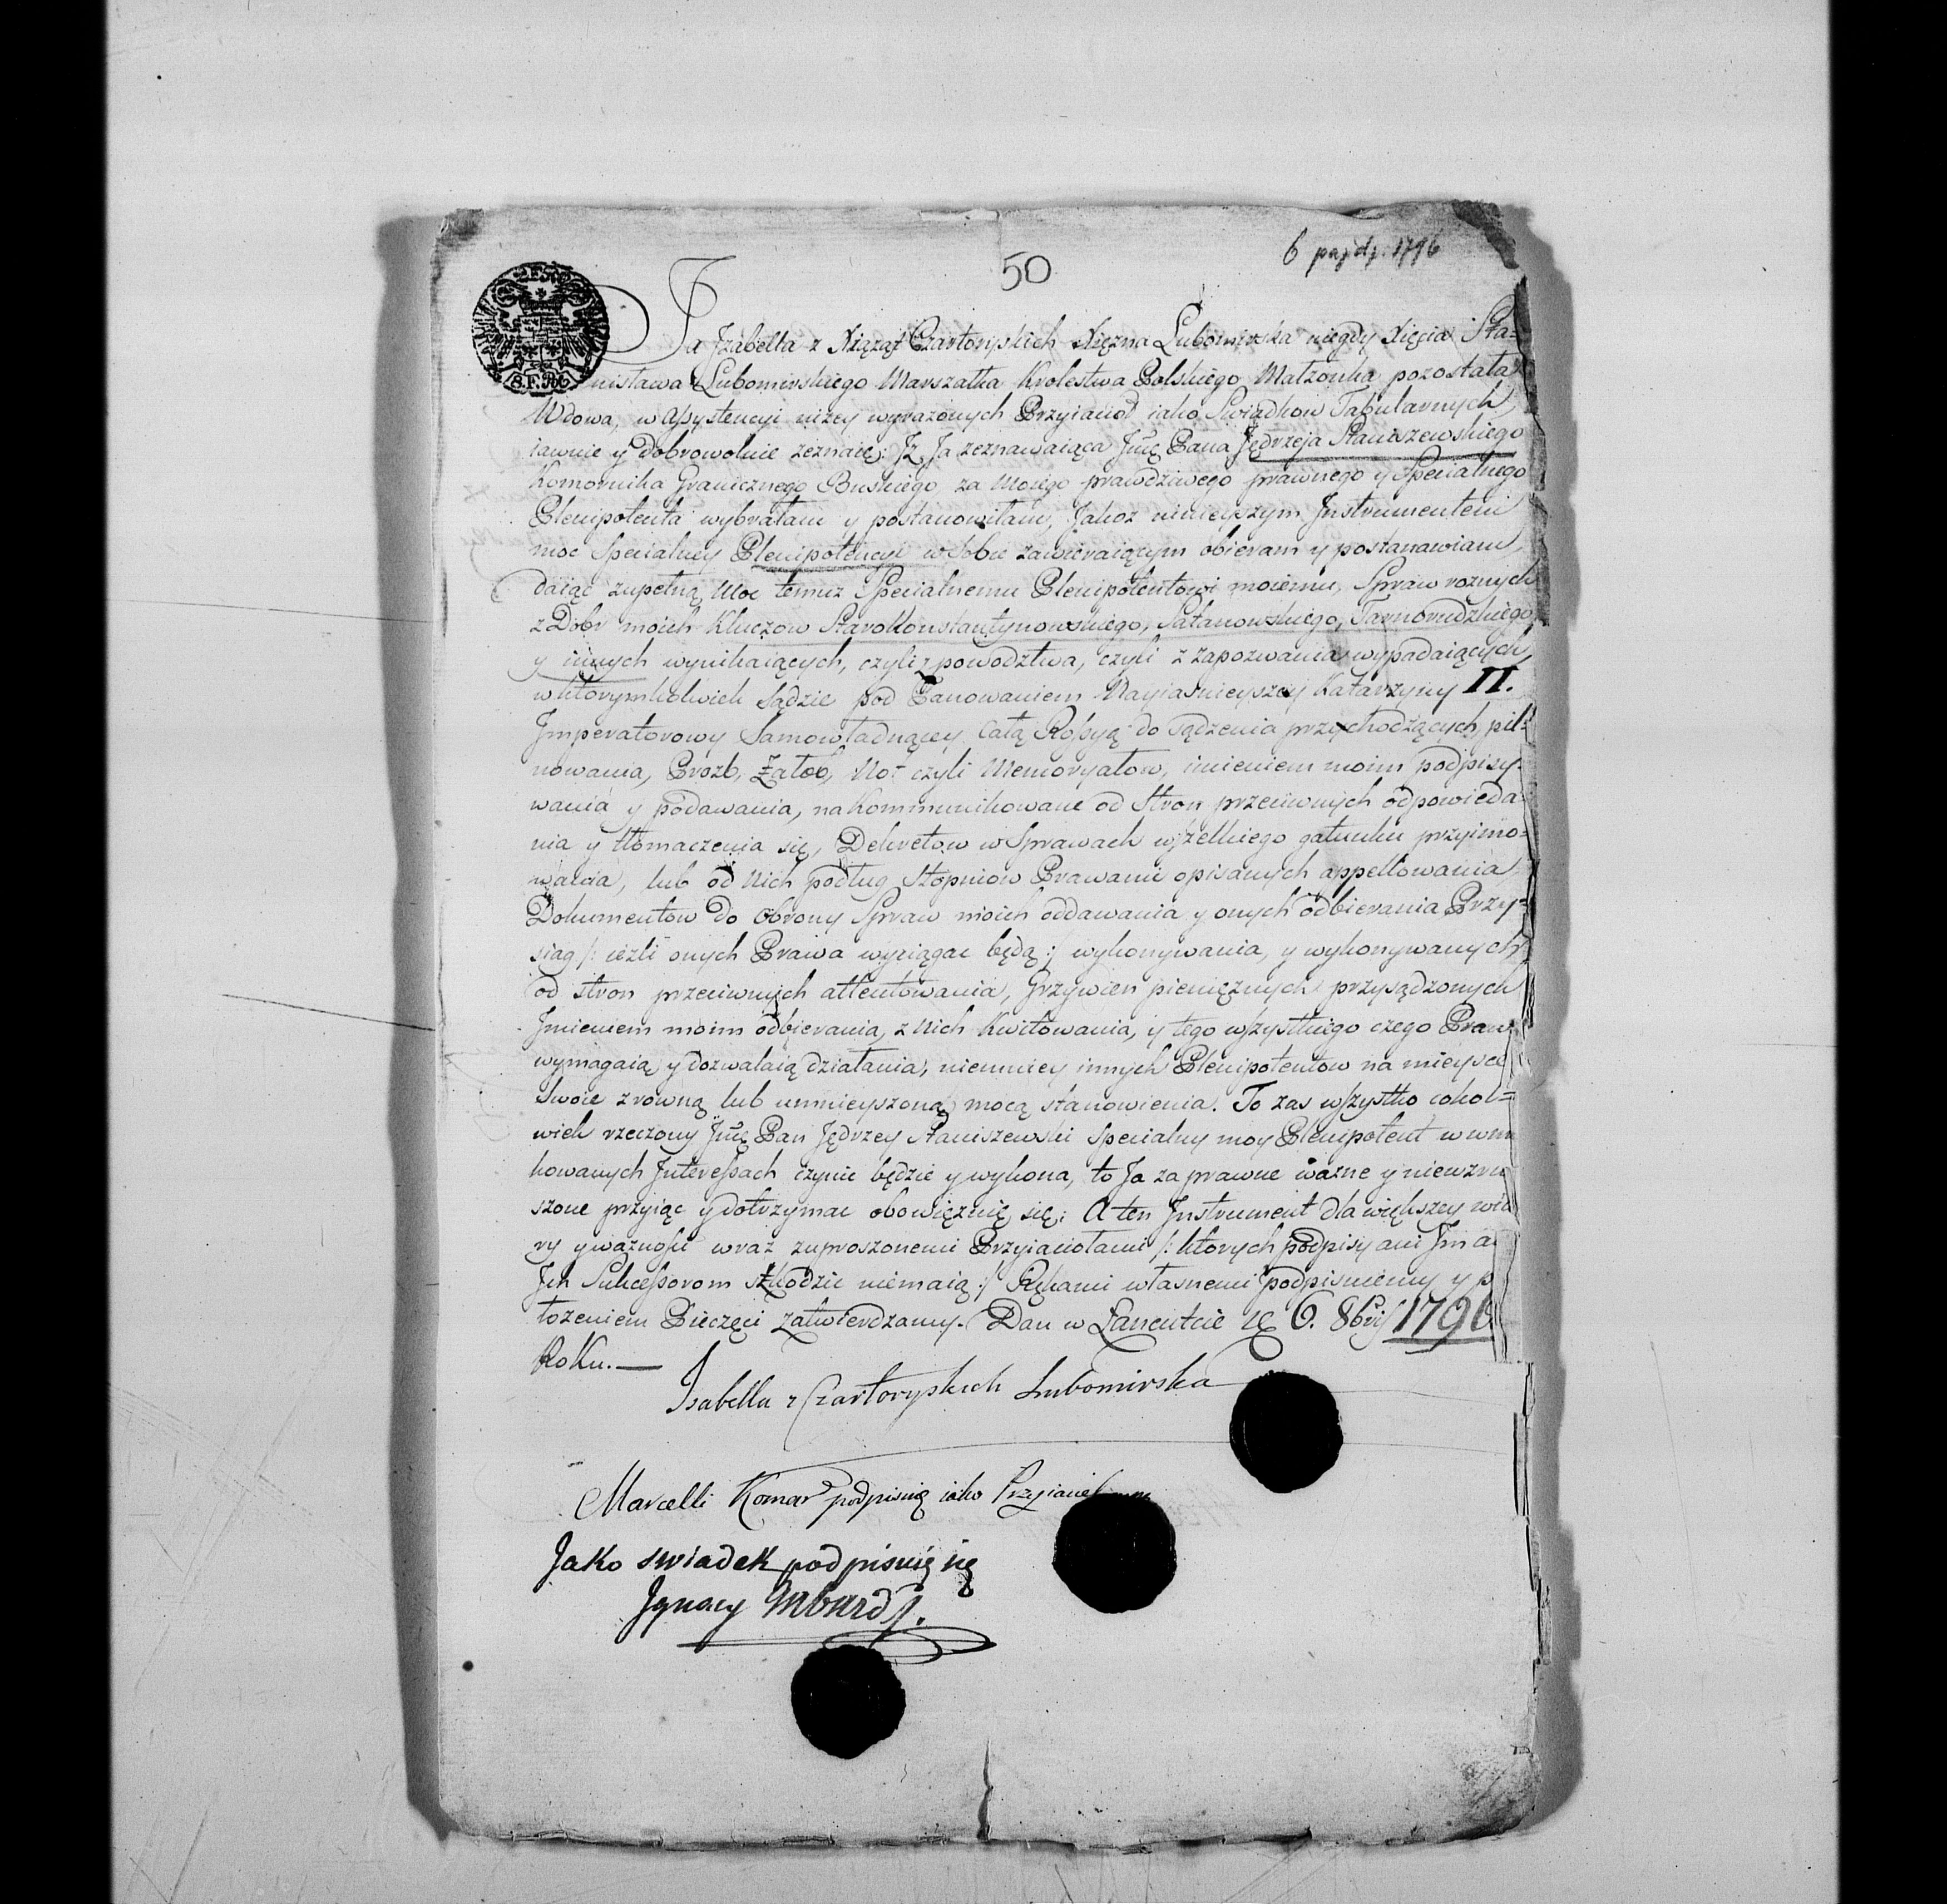 6 pazdz. 1796
50
8. F. Kr.
Ja Jzabella z Xiążąt Czartoryskich Xiężna Lubomirska niegdy Xięcia Sta=
nisława Lubomirskiego Marszałka Krolestwa Polskiego Małżonka pozostała
Wdowa, w Assystencyi niżey wyrażonych Przyiacioł iako Swiadkow Tabularnych,
iawnie y dobrowolnie zeznaię: Jż Ja zeznawaiąca Jmć Pana Jędrzeja Staniszewskiego
Komornika Granicznego Buskiego, za Moiego prawdziwego prawnego y Specialnego
Plenipotenta wybrałam y postanowiłam, Jakoż ninieyszym Jnstrumentem
moc Specialney Plenipotencyi w Sobie zawieraiącym obieram y postanawiam,
daiąc zupełną Moc temuż Specialnemu Plenipotentowi moiemu, Spraw rożnych
z Dobr moich Kluczow StaroKonstantynowskiego, Satanowskiego, Tarnorudzkiego
y innych wynikaiących, czyli z powodztwa, czyli z zapozwania wypadaiących,
w ktorymkolwiek Sądzie pod Panowaniem Nayiasnieyszey Katarzyny II.
Jmperatorowy Samowładnącey Całą Rossyą do sądzenia przychodzących, pil=
nowania, Prozb, Załob, Not czyli Memoryałow, imieniem moim podpisy=
wania y podawania, na Kommunikowane od Stron przeciwnych odpowieda=
nia y tłomaczenia się, Dekretow w Sprawach wszelkiego gatunku przyimo=
wania, lub od Nich podług Stopniow Prawami opisanych appellowania,
Dokumentow do Obrony Spraw moich oddawania y onych odbierania Przy=
siąg /: iezli onych Prawa wyciągac będą :/ wykonywania, y wykonywanych
od stron przeciwnych attentowania, Grzywien pieniężnych przysądzonych
Jmieniem moim odbierania, z Nich Kwitowania, y tego wszystkiego czego Praw
wymagaią y dozwalaią działania, niemniey innych Plenipotentow na mieysce
Swoie z rowną lub umnieyszoną mocą stanowienia. To zas wszystko cokol=
wiek rzeczony Jmć Pan Jędrzey Staniszewski Specialny moy Plenipotent w
kowanych Jnteressach czynic będzie y wykona, to Ja za prawne ważne y niewzru
szone przyiąc y dotrzymac obowięzuię się; A ten Jnstrument dla większey wia
ry y ważnosci wraz z uproszonemi Przyiaciołami /: ktorych podpisy ani Jm a
Jch Sukcessorom szkodzic niemaią :/ Rękami własnemi podpisuiemy y p
łożeniem Pieczęci zatwierdzamy. Dan w Łancucie 6. 8bris 1796
Roku. —
Isabella z Czartoryskich Lubomirska
Marcelli Komar podpisuię iako Przyiaciel
Jako swiadek podpisuię się
Jgnacy